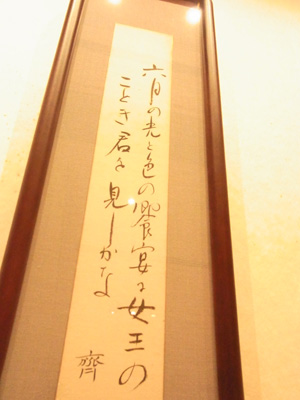 六月の光と色の饗宴に女王の
ごとき君を見しかな
齊